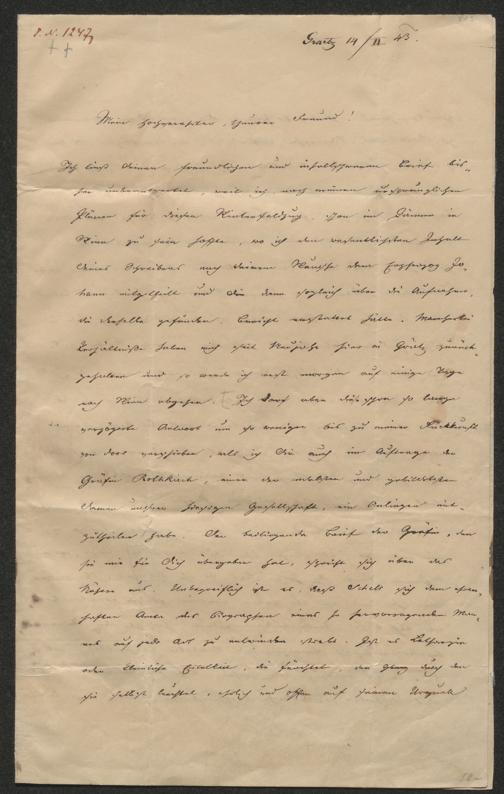 I. N. 1247
Graetz 14/II 43.
Mein hochverehrter, theurer Freund!
Ich ließ deinen freundlichen und inhaltschweren Brief bis-
her unbeantwortet, weil ich nach meinem ursprünglichen
Plane für diesen Winterfeldzug, schon im Jänner in
Wien zu sein hoffte, wo ich den wesentlichsten Inhalt
deines Schreibens nach deinem Wunsche dem Erzherzog Jo-
hann mitgetheilt und dir dann sogleich über die Aufnahme,
die derselbe gefunden, Bericht erstattet hätte. Mancherlei
Verhältniße haben mich seit Neujahr hier in Grätz zurück-
gehalten und so werde ich erst morgen auf einige Tage
nach Wien abgehen. Ich darf aber die schon so lange
verzögerte Antwort um so weniger bis zu meiner Rückkunft
von dort verschieben, als ich dir auch im Auftrage der
Gräfin Rothkirch, einer der edelsten und gebildetsten
Damen unserer hiesigen Gesellschaft, ein Anliegen mit-
zutheilen habe. Der beiliegende Brief der Gräfin, den
sie mir für dich übergeben hat, spricht sich über das
Nähere aus. Unbegreiflich ist es, daß Schels sich dem ehren-
haften Amte des Biographen eines so hervorragenden Man-
nes auf jede Art zu entwinden strebt. Ist es Lethargie
oder kleinliche Eitelkeit, die fürchtet, den Glanz durch den
sie selbst leuchtet, ehrlich und offen auf seinen Urquell